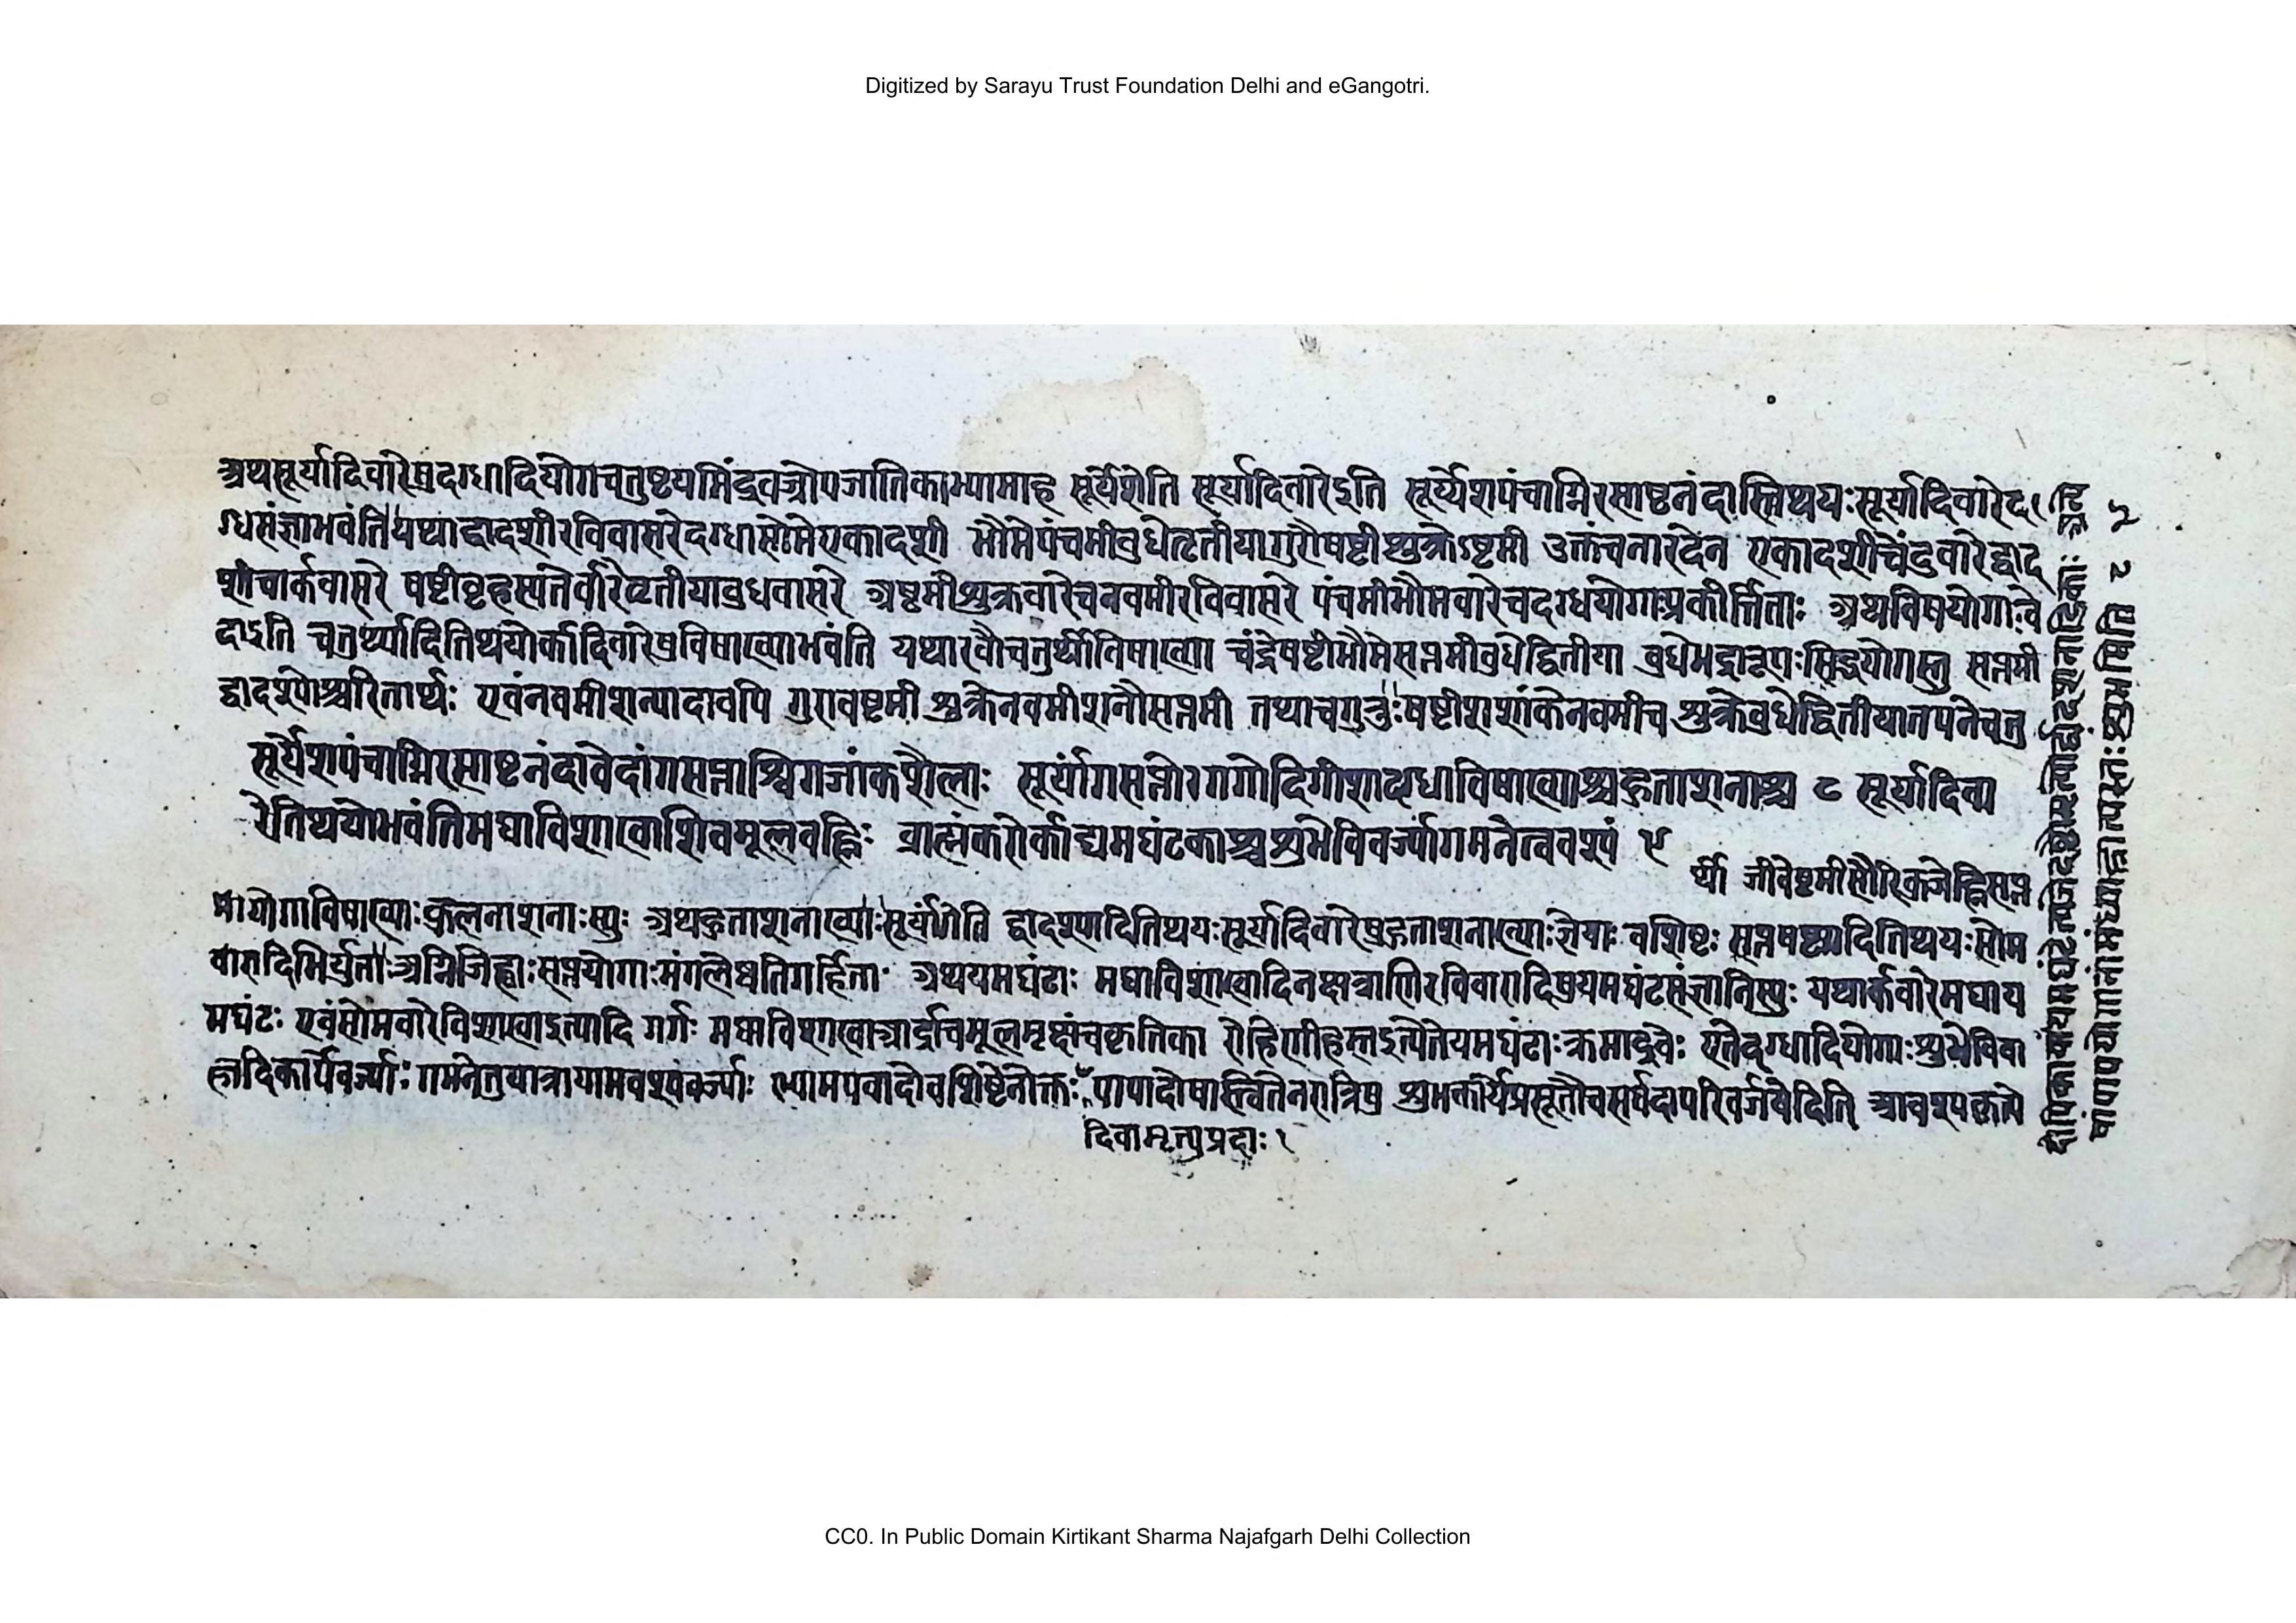 Digitized by Sarayu Trust Foundation Delhi and eGangotri.
अथसूर्यादिवारेषुदग्धादियोगचतुष्टयमिंद्रवज्रोपजातिकाभ्यामाह सूर्येशेति सूर्यादिवारेऽति सूर्य्येशपंचाग्निरसाष्टनंदास्तिथयःसूर्यादिवारेद
ग्धसंज्ञाभवंतियथाद्वादशीरविवासरेदग्धासोमेएकादशी भौमेपंचमीबुधेतृतीयागुरौषष्टीशुक्रेऽष्टमी उक्तंचनारदेन एकादशीचेंदुवारेद्वाद
शीचार्कवासरे षष्टीबृहस्पतेर्वारेतृतीयाबुधवासरे अष्टमीशुक्रवारेचनवमीरविवासरे पंचमीभौमवारेचदग्धयोगाःप्रकीर्त्तिताः अथविषयोगाःवे
दाऽति चतुर्थ्यादितिथयोर्कादिवारेषुविषाख्याभवंति यथारवौचतुर्थीविषाख्या चंद्रेषष्टीभौमेसप्तमीबुधेद्वितीया बुधेभद्रा सिद्धयोगस्तु सप्तमी
द्वादश्योश्चरितार्थः एवंनवमीशन्यादावपि गुरावष्टमी शुक्रेनवमीशनौसप्तमी तथाच षष्टीशशांकेनवमीच शुक्रेबुधेद्वितीयातपनेचतु
सूर्येशपंचाग्निरसाष्टनंदावेदांगसप्ताश्विगजांकशैलाः सूर्यांगसप्तोरगगोदिगीशादग्धाविषाख्याश्चहुताशनाश्च ८ सूर्यादिवा
रेतिथयोभवंतिमघाविशाखाशिवमूलवह्निः ब्राह्मंकरोर्काद्यमघंटकाश्चशुभेविवर्ज्यागमनेत्ववश्यं ९
र्थी जीवेष्टमीसौरि सप्त
योगाविषाख्याःकुलनाशनाःस्युः अथहुताशनाख्याःसूर्यांगेति द्वादश्यादितिथयःसूर्यादिवारेषुहुताशनाख्याःज्ञेयाः वशिष्टः सप्तषष्ट्यादितिथयःसोम
वारादिभिर्युताःअग्निजिह्वाःसप्तयोगाःमंगलेष्वतिगर्हिताः अथयमघंटाः मघाविशाखादिनक्षत्राणिरविवारादिषुयमघंटसंज्ञानिस्युः यथार्कवारेमघाय
मघंटः एवंसोमवारेविशाखाऽत्यादि गर्गः मघाविशाखाआर्द्राचमूलमृक्षंचकृतिका रोहिणीहस्तऽत्येतेयमघंटाःक्रमाद्रवेः एतेदग्धादियोगाःशुभेविवा
हादिकार्येवर्ज्याः गमनेतुयात्रायामवश्यंवर्ज्याः वशिष्टेनोक्तः पापादोषा शुभकार्येप्रसूतौचसर्वदापरिवर्जयेदिति आवश्यककृत्ये
दिवामृत्युप्रदाः १
CC0. In Public Domain Kirtikant Sharma Najafgarh Delhi Collection